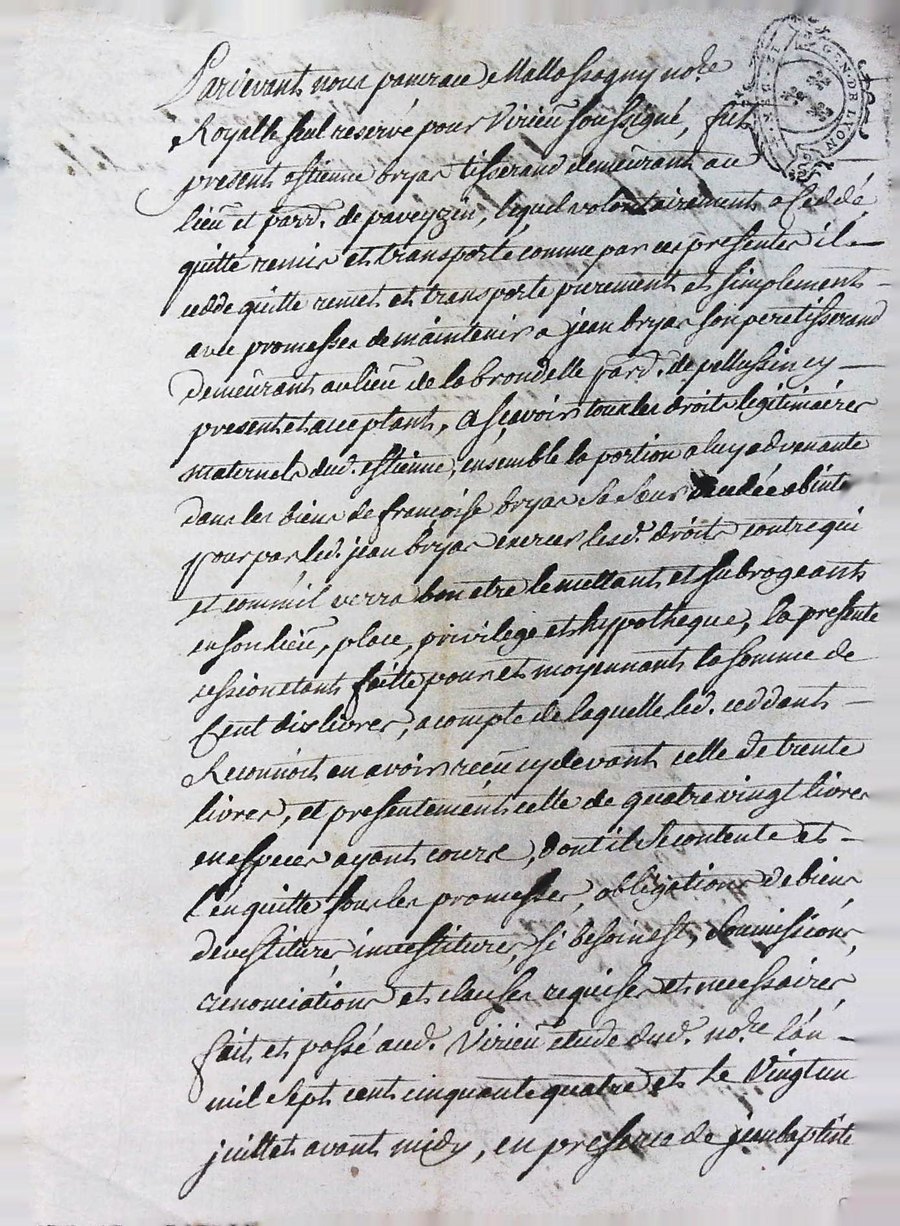 Pardevant nous pancrace Mallassagny no.re
Royal & seul reservé pour Virieu soussigné, fut
present estienne bryas tisserand demeurant au
lieu et parr. de paveyzin, lequel volontairement a Ceddé
quitté remis et transporté comme par ces presentes il
cedde quitte remet et transporte purement et simplement
avec promesses de maintenir a jean bryas son pere tisserand
demeurant au lieu de la brondelle parr. de pellussin cy
present et acceptant, a sçavoir tous les droits legitimaires
maternels dud. estienne, ensemble la portion a luy advenante
dans les biens de françoise bryas sa sœur decedée abinte
pour par led. jean bryas exercer lesd. droits contre qui
et comm'il verra bon etre le mettant et subrogeant
en son lieu, place, privilege et hypotheque, la presente
cession etant faitte pour et moyennant la somme de
Cent dix livres, a compte de laquelle led. ceddant
Reconnoit en avoir reçeu cy devant celle de trente
livres, et presentement celle de quatre vingt livres
en especes ayant cours, dont il se contente et
l'en quitte sous les promesses, obligations de biens
devestitures, investitures, si besoin est, soumissions,
renonciations et clauses requises et necessaires
fait et passé aud. Virieu etude dud. no.re l'an
mil sept cent cinquante quatre et le vingt un
juillet avant midy, en presence de jean baptiste
GEN. DE LYON